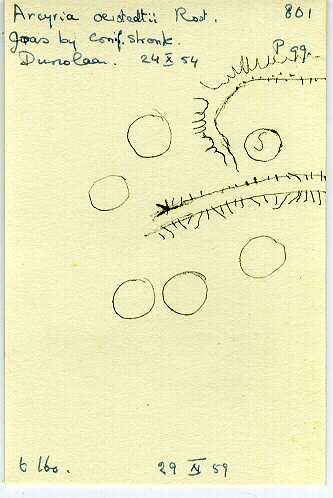 Arcyria oerstedtii Rost. 801
Joas by conif. stronk. P 99.
Duinlaan. 24 X 54
5
6 lbo. 29 IV 59